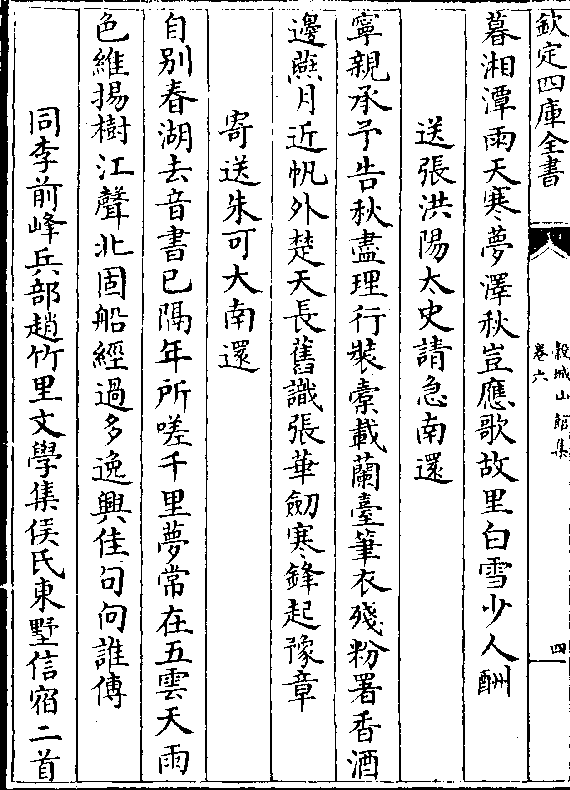 欽定四庫全書
榖城山館集
卷六
四
暮湘潭雨天寒夢澤秋豈應歌故里白雪少人酬
送張洪陽太史請急南還
寧親承予告秋盡理行裝橐載蘭臺筆衣殘粉署香酒
邊燕月近帆外楚天長舊識張華劒寒鋒起豫章
寄送朱可大南還
自别春湖去音書已隔年所嗟千里夢常在五雲天雨
色維揚樹江聲北固船經過多逸興佳句向誰傳
同李前峰兵部趙竹里文學集侯氏東墅信宿二首